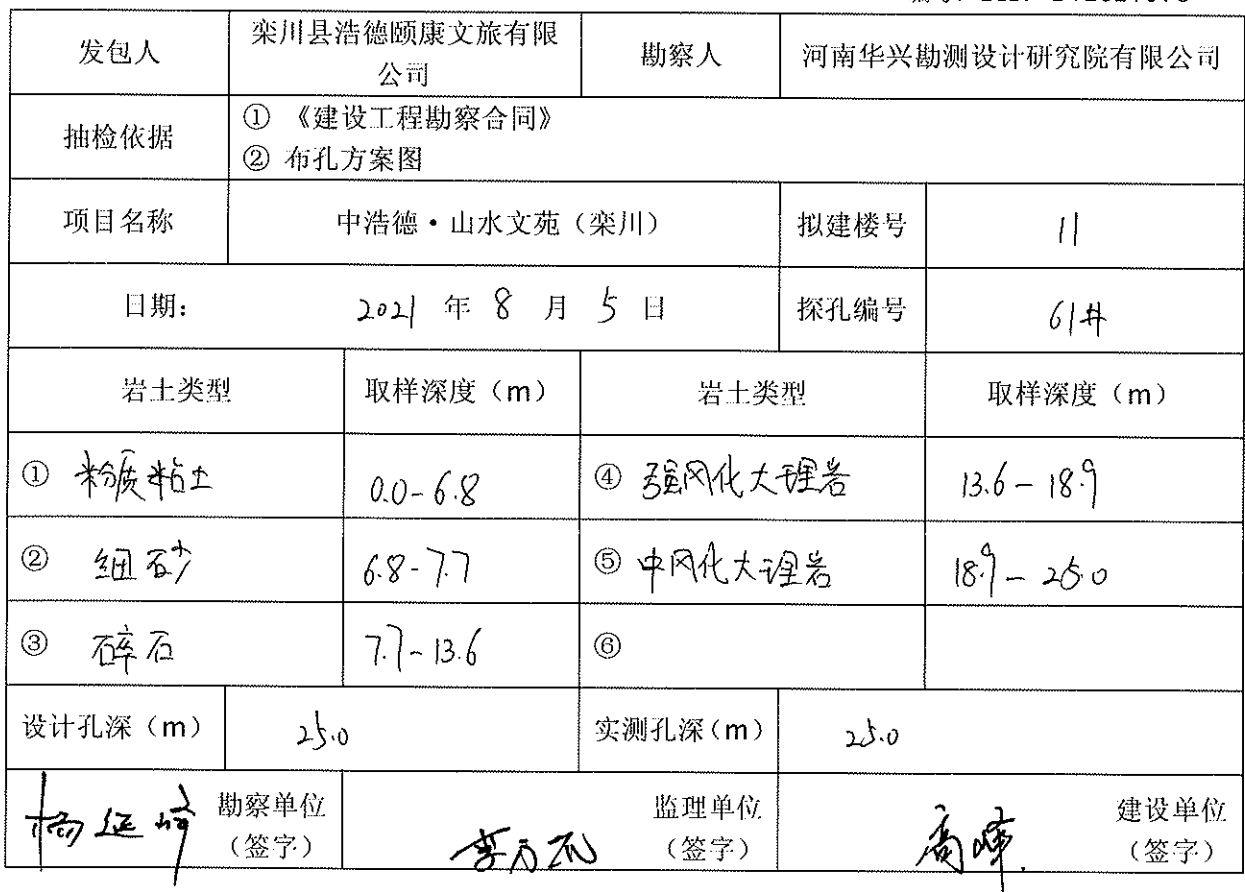 发包人 栾川县浩德颐康文旅有限公司 勘察人 河南华兴勘测设计研究院有限公司
抽检依据 ① 《建设工程勘察合同》
② 布孔方案图
项目名称 中浩德·山水文苑（栾川） 拟建楼号 11
日期： 2021 年 8 月 5 日 探孔编号 61#
岩土类型 取样深度（m） 岩土类型 取样深度（m）
① 粉质粘土 0.0-6.8 ④ 强风化大理岩 13.6-18.9
② 细砂 6.8-7.7 ⑤ 中风化大理岩 18.9-25.0
③ 碎石 7.7-13.6 ⑥
设计孔深（m） 25.0 实测孔深（m） 25.0
勘察单位 监理单位 高峰 建设单位
（签字） （签字） （签字）